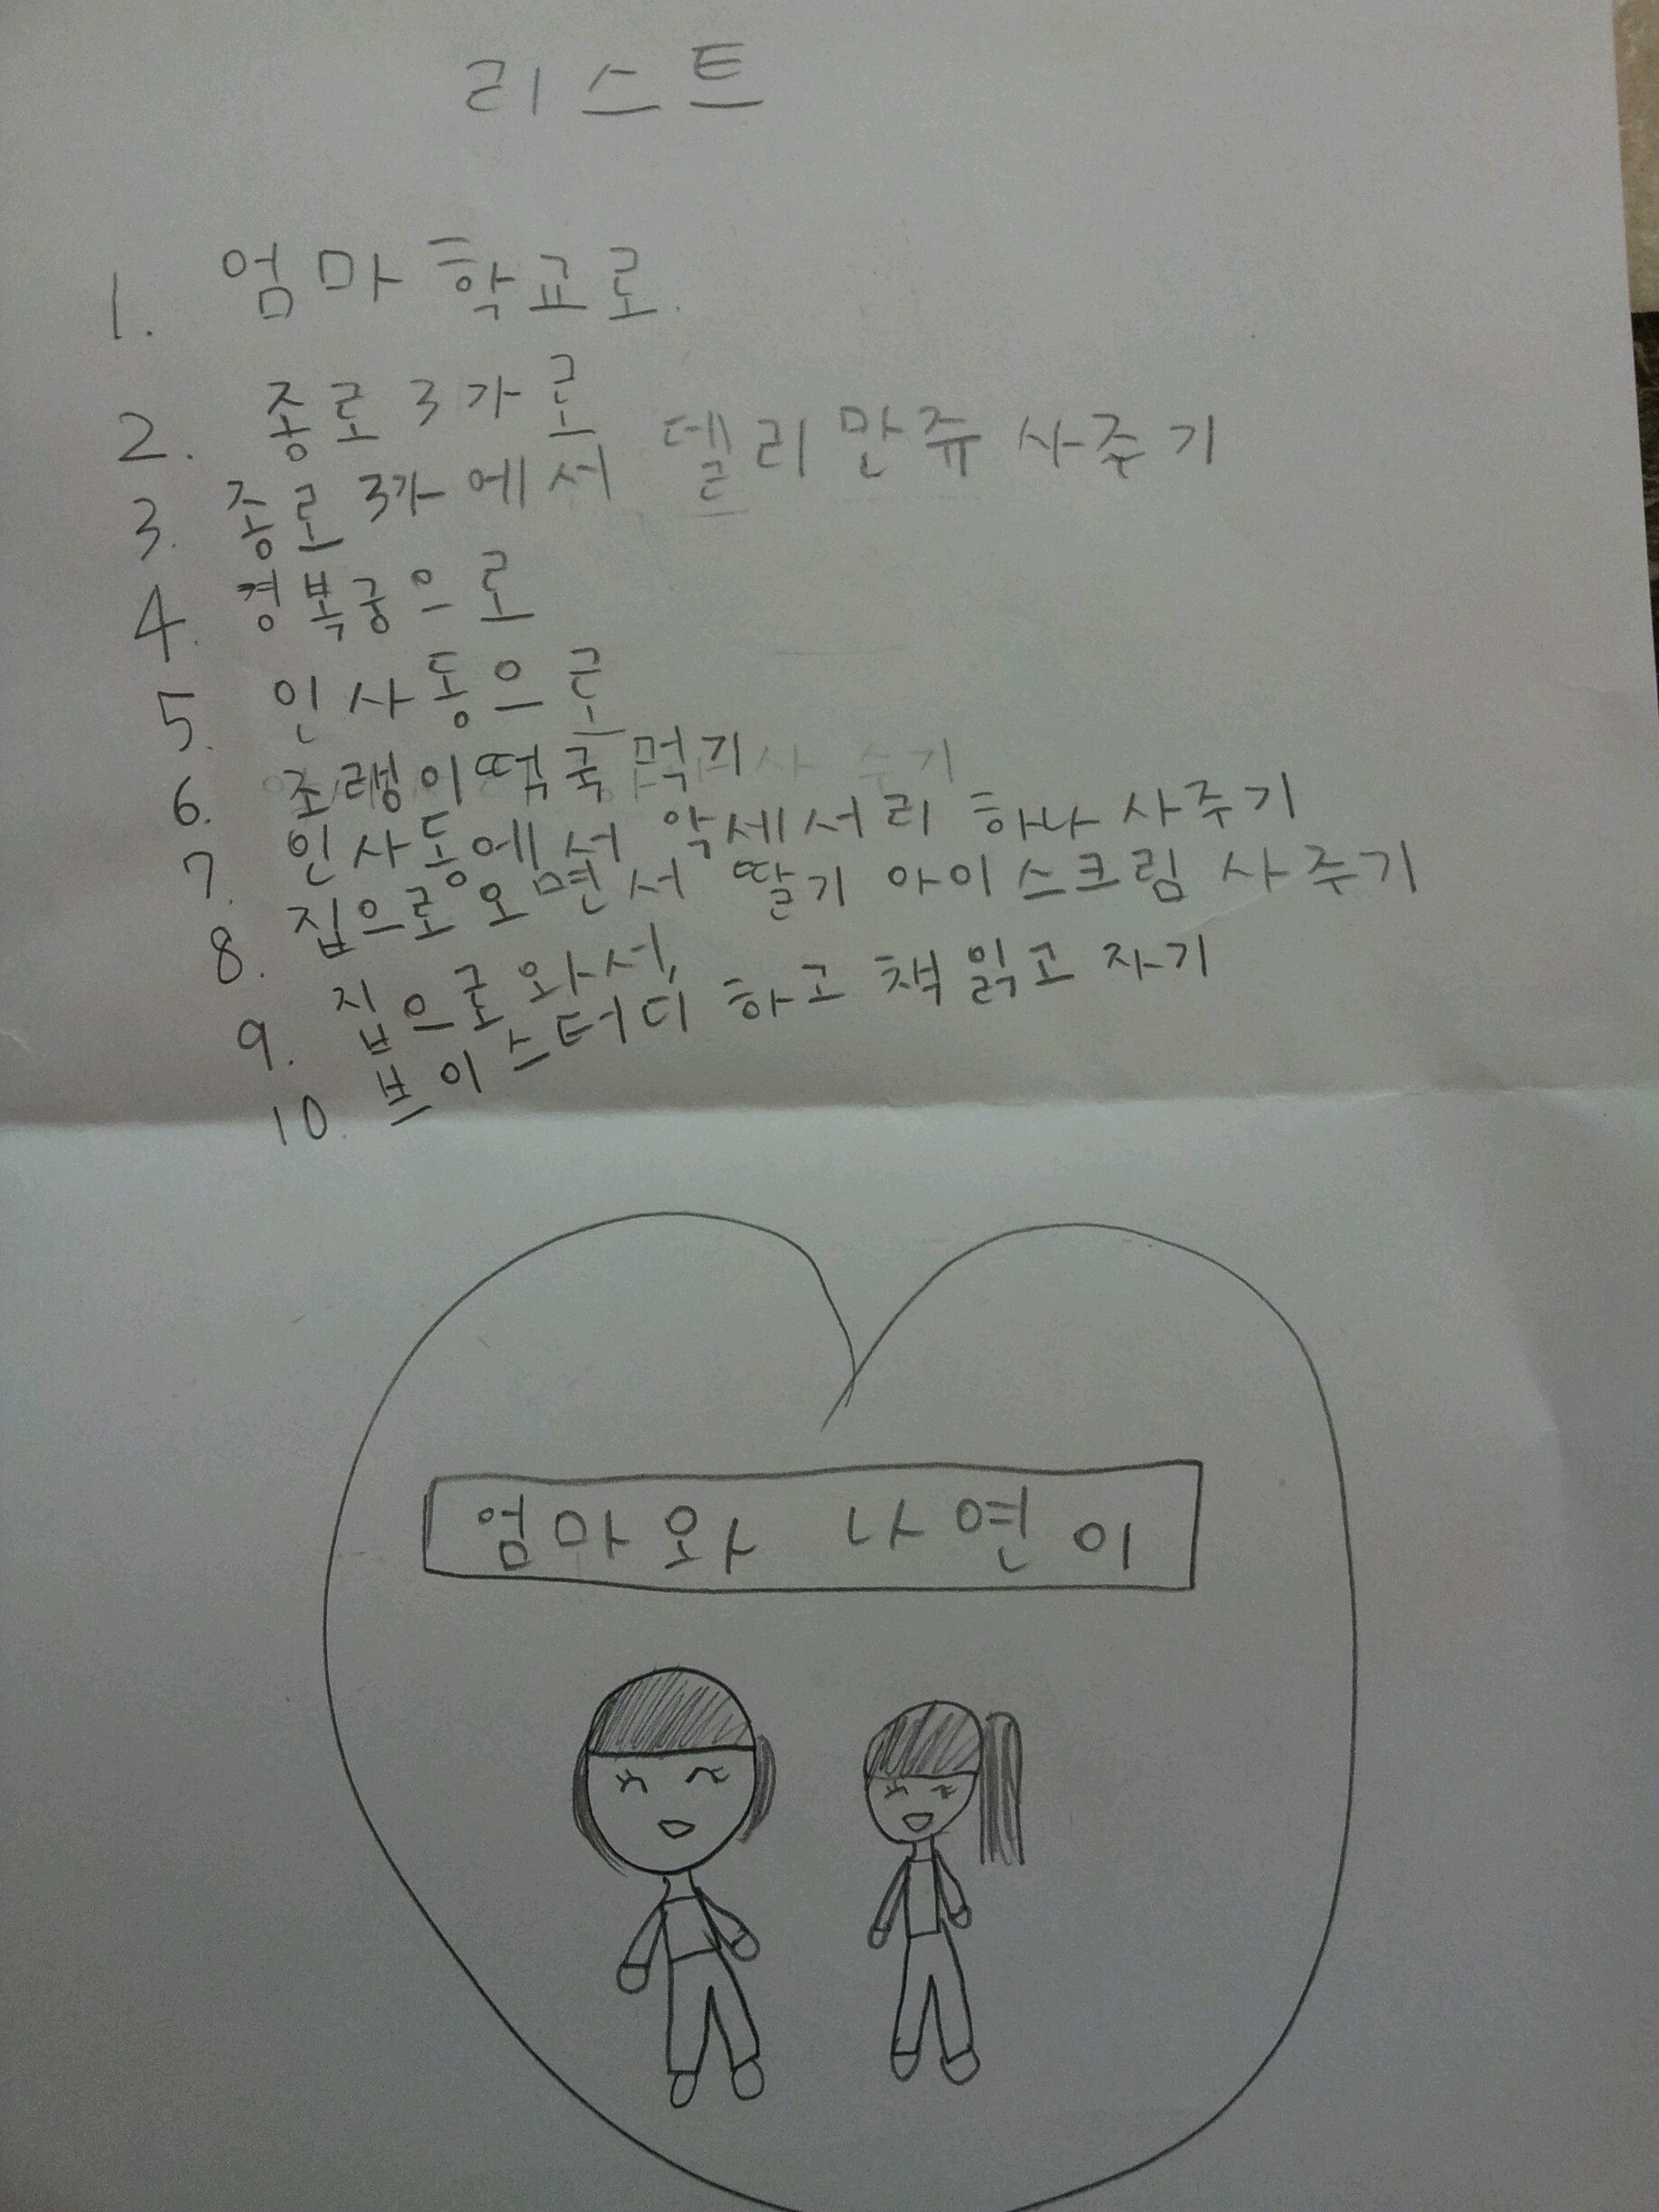 리스트
1. 엄마 학교로.
2. 종로 3가로
3. 종로 3가에서 델리만쥬 사주기
4. 경복궁으로
5. 인사동으로
6. 조랭이떡국 먹기
7. 인사동에서 악세서리 하나 사주기
8. 집으로 오면서 딸기 아이스크림 사주기
9. 집으로 와서,
10. 브이스터디 하고 책 읽고 자기
엄마와 나연이